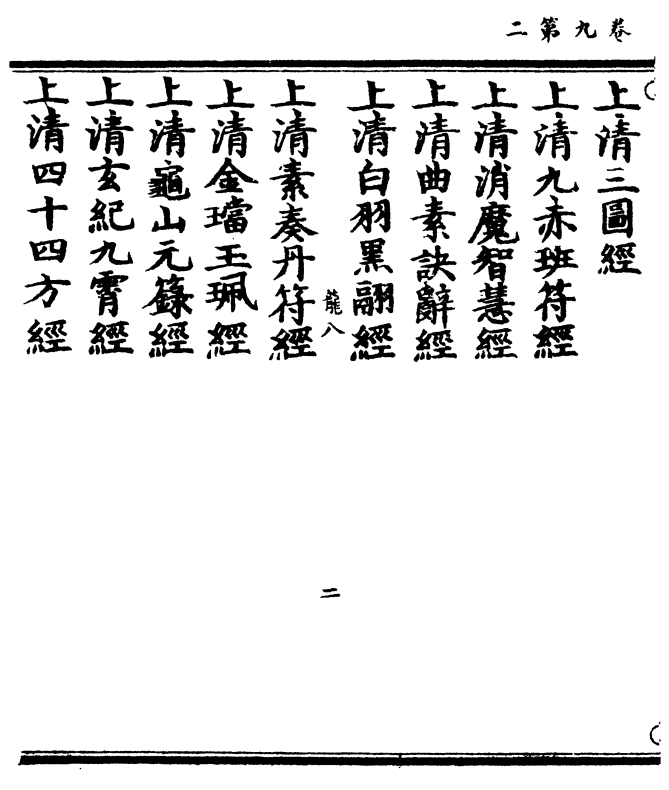 二第九卷
上清三圖經
上清九赤班符經
上清消魔智慧經
上清曲素訣辭經
上清白羽黑翮經
上清素奏丹符經
上清金璫玉珮經
上清龜山元籙經
上清玄紀九霄經
上清四十四方經
八
二